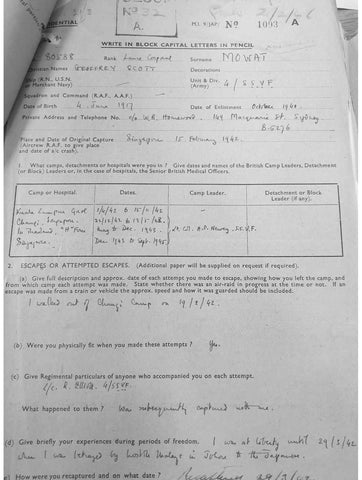 DENTIAL 3/3
No 92
A.
M.I. 9/JAP/ No 1093 A
WRITE IN BLOCK CAPITAL LETTERS IN PENCIL
Rank Lance Corporal Surname MOWAT
Christian Names GEOFFREY SCOTT Decorations
(R.N., U.S.N. or Merchant Navy) Unit & Div. (Army) 4/S.S.V.F.
Squadron and Command (R.A.F., A.A.F.)
Date of Birth 4 June 1917 Date of Enlistment October 1940.
Private Address and Telephone No. c/o W.R. Homewood. 149 Macquarie St. Sydney.
B.5276
Place and Date of Original Capture Singapore 15 February 1942.
(Aircrew R.A.F. to give place
and date of a/c crash).
1. What camps, detachments or hospitals were you in? Give dates and names of the British Camp Leaders, Detachment
(or Block) Leaders or, in case of the hospitals, the Senior British Medical Officers.
Camp or Hospital. Dates. Camp Leader. Detachment or Block Leader (if any).
Kuala Lumpur Gaol
Changi Singapore.
In Thailand, "H" Force May to Dec. 1943. Lt. Col. S.S.V.F.
Singapore. Dec. 1943 to Sept. 1945.
2. ESCAPES OR ATTEMPTED ESCAPES. (Additional paper will be supplied on request if required).
(a) Give full description and approx. date of each attempt you made to escape, showing how you left the camp, and
from which camp each attempt was made. State whether there was an air-raid in progress at the time or not. If an
escape was made from a train or vehicle the approx. speed and how it was guarded should be included.
I walked out of Changi Camp on 19/2/42.
(b) Were you physically fit when you made these attempts? Yes.
(c) Give Regimental particulars of anyone who accompanied you on each attempt.
L/c. R. 4/SSVF.
What happened to them? Was subsequently captured with me.
(d) Give briefly your experiences during periods of freedom. I was at liberty until 29/3/42
when I was betrayed by hostile Malays in Johore to the Japanese.
(e) How were you recaptured and on what date? 29/3/42